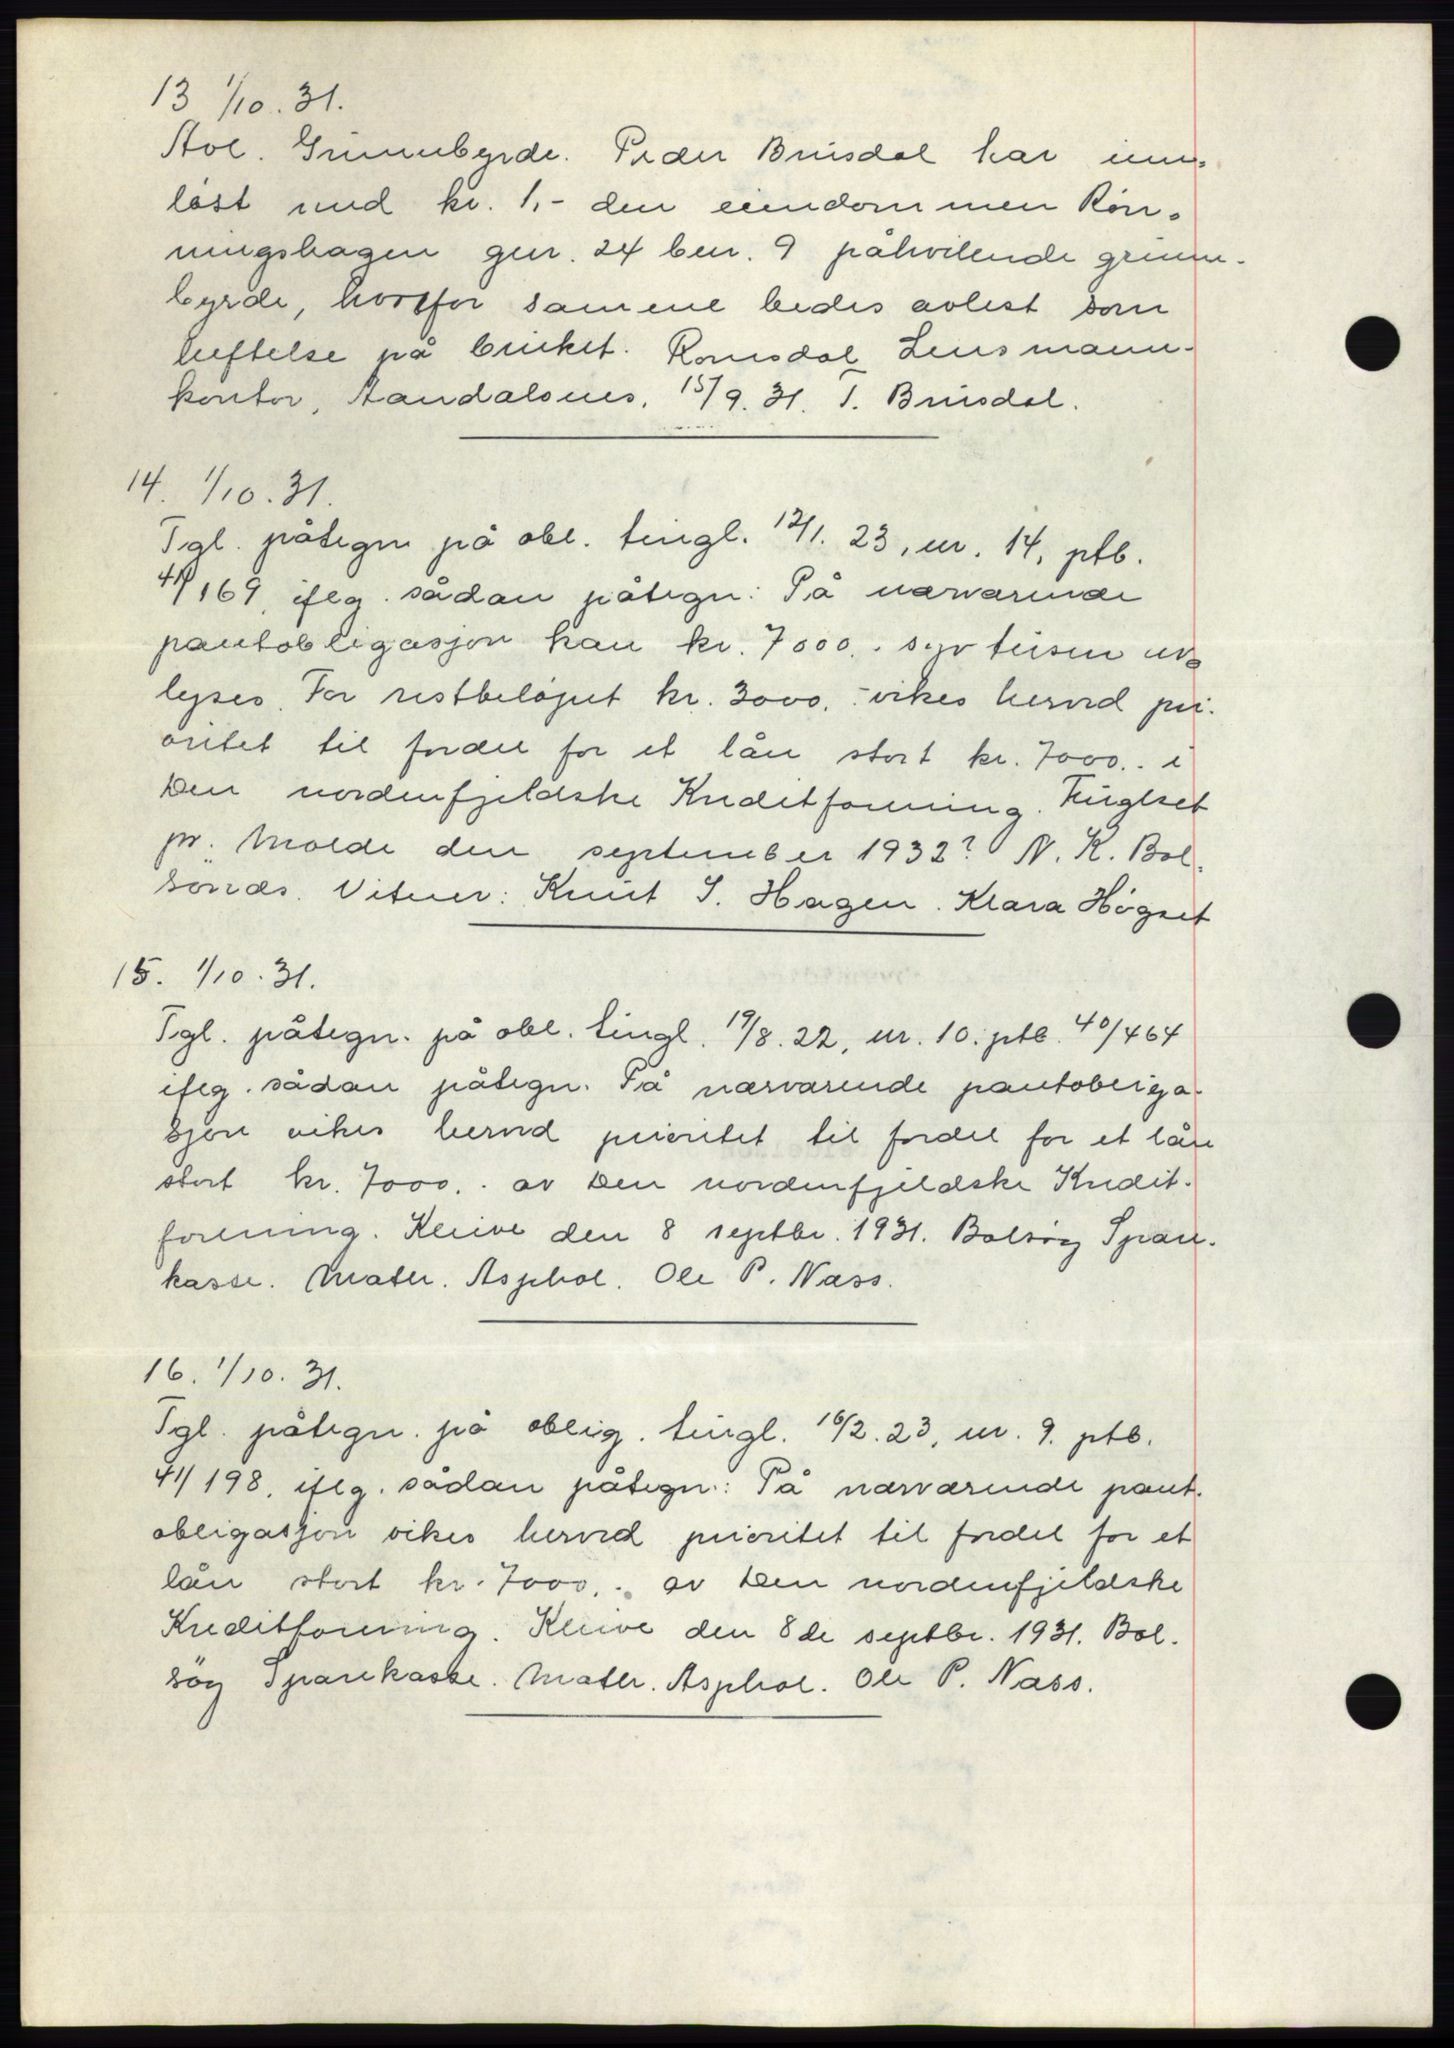 13 1/10. 31.
Avl. Grunnbyrde. Peder Brusdal har inn-
löst med kr. 1,- den eiendommen Rön-
ningshagen gnr. 24 bnr. 9 påhvilende grunn-
byrde, hvorfor samme bedes avlest som
heftelse på bruket. Romsdal Lensmann-
kontor, Aandalsnes, 15/9. 31. T. Brusdal.
14. 1/10. 31.
Tgl. påtegn på obl. tingl. 12/1. 23, nr. 14, ptb.
41/169, iflg. sådan påtegn: På nærværende
pantobligasjon kan kr. 7000.- syv tusen
lyses. For restbelöpet kr. 3000.- vikes herved pri-
oritet til fordel for et lån stort kr. 7000.- i
Den nordenfjeldske Kreditforening. Fuglset
pr. Molde den september 1932? N. K. Bol-
sönes. Vitner: Knut S. Hagen. Klara Högset
15. 1/10. 31.
Tgl. påtegn. på obl. tingl. 19/8. 22, nr. 10. ptb. 40/464
iflg. sådan påtegn. På nærværende pantobliga-
sjon vikes herved prioritet til fordel for et lån
stort kr. 7000.- av Den nordenfjeldske Kredit-
forening. Kleive den 8 septbr. 1931. Bolsöy Spare-
kasse. Math. Asphol. Ole P. Næss.
16. 1/10. 31.
Tgl. påtegn. på oblig. tingl. 16/2. 23, nr. 9. ptb.
41/198, iflg. sådan påtegn.: På nærværende pant-
obligasjon vikes herved prioritet til fordel for et
lån stort kr. 7000.- av Den nordenfjeldske
Kreditforening. Kleive den 8de septbr. 1931. Bol-
söy Sparekasse. Math. Asphol. Ole P. Næss.